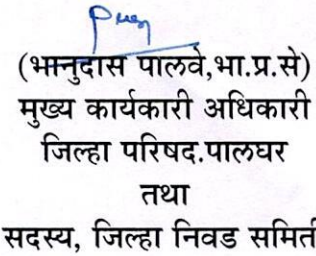 (भानुदास पालवे,भा.प्र.से)
मुख्य कार्यकारी अधिकारी
जिल्हा परिषद.पालघर
तथा
सदस्य, जिल्हा निवड समिती